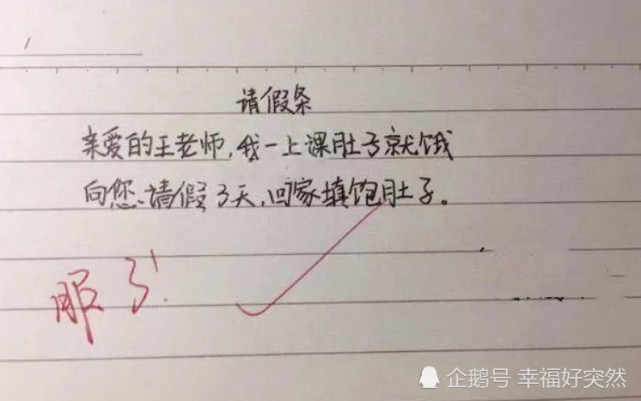 请假条
亲爱的王老师，我一上课肚子就饿
向您请假3天，回家填饱肚子。
服了！
企鹅号 幸福好突然